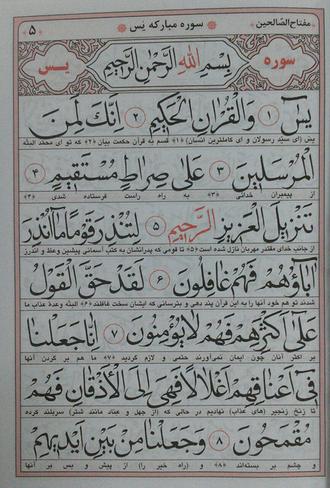 مفتاح الصالحین * سوره مبارکه یس * ۵
سوره بِسْمِ اللهِ الرَّحْمنِ الرَّحیمِ یس
یسۤ ۱ وَالْقُرْانِ الْحَکیمِ ۲ اِنَّکَ لَمِنَ
یس (ای سید رسولان و ای کاملترین انسان) «۱» قسم به قرآن حکمت بیان «۲» که تو ای محمد البته
الْمُرْسَلینَ ۳ عَلی صِراطٍ مُسْتَقیمٍ ۴
از پیمبران خدائی «۳» به راه راست فرستاده شدی «۴»
تَنْزیلَ الْعَزیزِ الرَّحیمِ ۵ لِتُنْذِرَ قَوْماً ما اُنْذِرَ
از جانب خدای مقتدر مهربان نازل شده است «۵» تا قومی که پدرانشان به کتب آسمانی پیشین وعظ و اندرز
اباؤُهُمْ فَهُمْ غافِلُونَ ۶ لَقَدْ حَقَّ الْقَوْلُ
شدند تو هم خود آنها را به این قرآن پند دهی و بترسانی که ایشان سخت غافلند «۶» البته وعدهٔ عذاب ما
عَلی اَکْثَرِهِمْ فَهُمْ لایُؤْمِنُونَ ۷ اِنّا جَعَلْنا
بر اکثر آنان چون ایمان نمی‌آورند حتمی و لازم گردید «۷» ما هم بر گردن آنها
فی اَعْناقِهِمْ اَغْلالاً فَهِیَ اِلَی الْاَذْقانِ فَهُمْ
تا زنخ زنجیر (های عذاب) نهادیم در حالی که از جهل و عناد مانند شتر) سربلند کرده
مُقْمَحُونَ ۸ وَجَعَلْنا مِنْ بَیْنِ اَیْدیهِمْ
و چشم بر بسته‌اند «۸» و (راه خیر را) از پیش و پس بر آنها